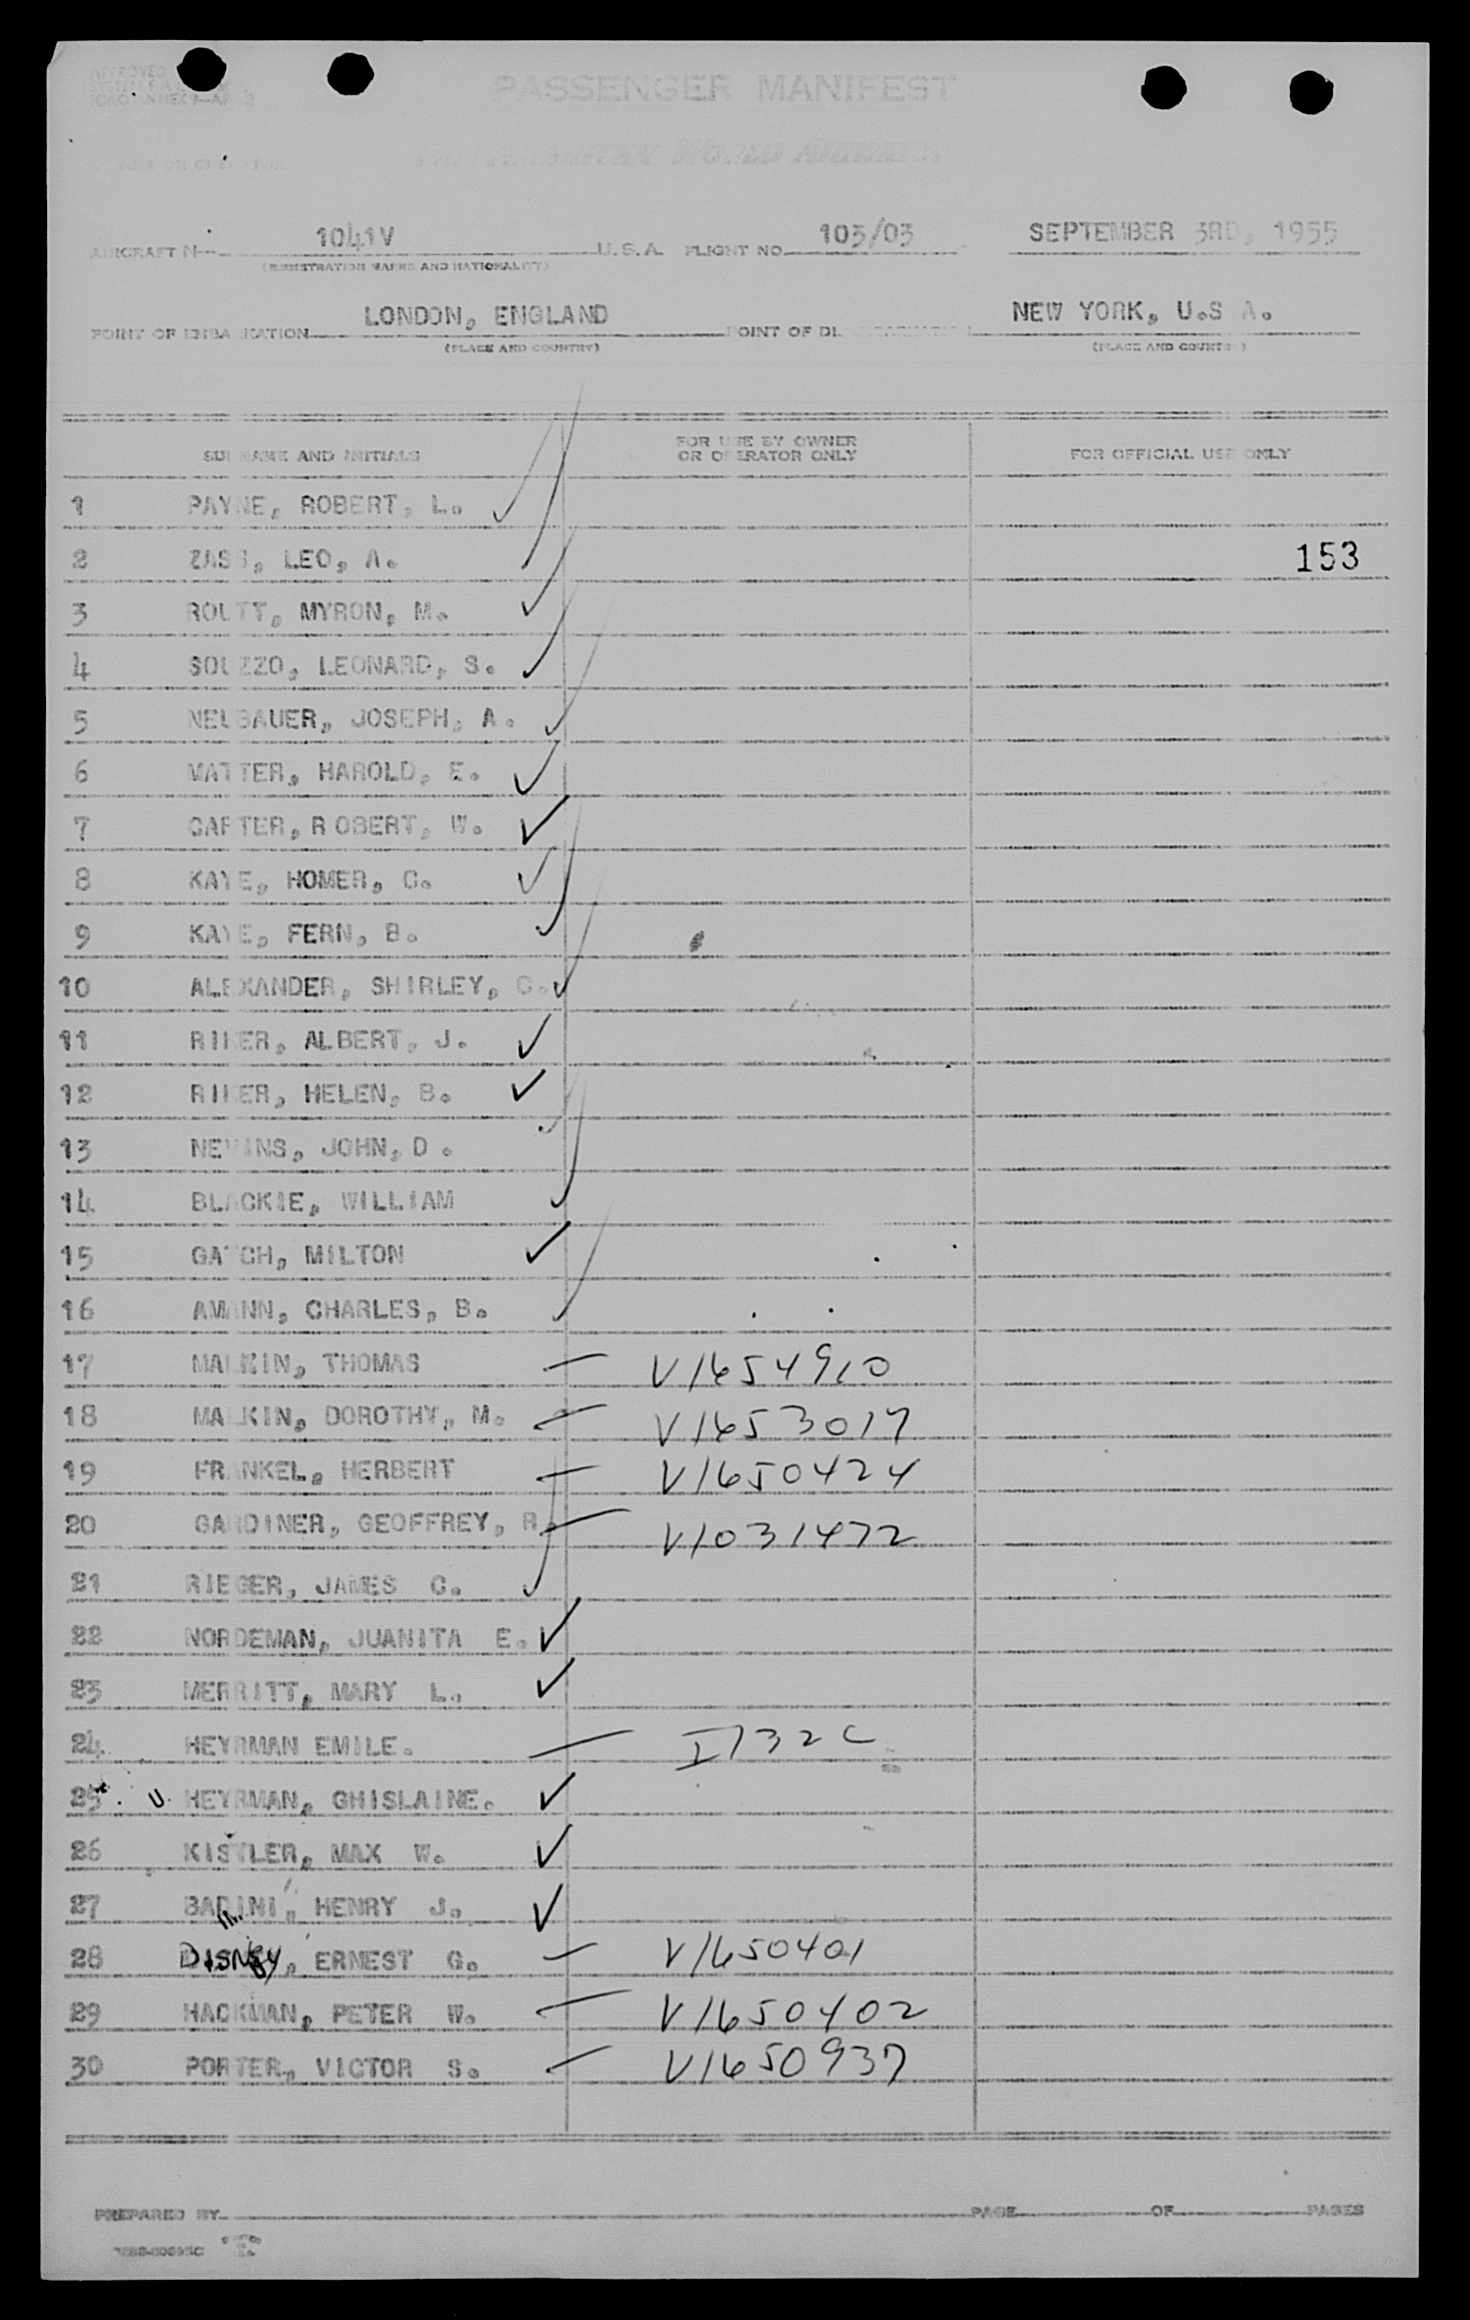 APPROVED
PASSENGER MANIFEST
AIRCRAFT N 1041V U.S.A. FLIGHT NO. 103/03 SEPTEMBER 3RD, 1955
(REGISTRATION MARKS AND NATIONALITY)
POINT OF EMBARKATION LONDON, ENGLAND POINT OF DI NEW YORK, U.S.A.
(PLACE AND COUNTRY) (PLACE AND COUNTRY)
SURNAME AND INITIALS FOR USE BY OWNER OR OPERATOR ONLY FOR OFFICIAL USE ONLY
1 PAYNE, ROBERT, L.
2 ZASS, LEO, A. 153
3 ROUTT, MYRON, M.
4 SOUZZO, LEONARD, S.
5 NEUBAUER, JOSEPH, A.
6 MATTER, HAROLD, E.
7 CARTER, ROBERT, W.
8 KAYE, HOMER, C.
9 KAYE, FERN, B.
10 ALEXANDER, SHIRLEY, C.
11 RIKER, ALBERT, J.
12 RIKER, HELEN, B.
13 NEVINS, JOHN, D.
14 BLACKIE, WILLIAM
15 GATCH, MILTON
16 AMANN, CHARLES, B.
17 MALKIN, THOMAS — V1654910
18 MALKIN, DOROTHY, M. — V1653017
19 FRANKEL, HERBERT — V1650424
20 GARDINER, GEOFFREY, R. — V1031472
21 RIEGER, JAMES C.
22 NORDEMAN, JUANITA E.
23 MERRITT, MARY L.
24 HEYRMAN EMILE. — I732C
25 U. HEYRMAN, GHISLAINE.
26 KISTLER, MAX W.
27 BADINI, HENRY J.
28 DISNEY, ERNEST G. — V1650401
29 HACKMAN, PETER W. — V1650402
30 PORTER, VICTOR S. — V1650937
PREPARED BY PAGE OF PAGES